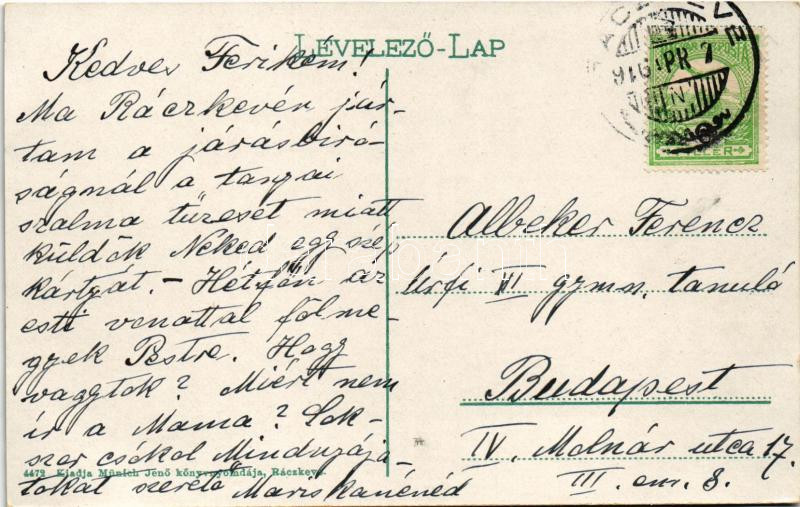 LEVELEZŐ-LAP
Kedves Ferikém!
Ma Ráczkevén jár-
tam a járásbiró-
ságnál a tanyai
szalma tüzeset miatt
küldök Neked egy szép
kártyát. - Hétfőn az
esti vonattal fölme-
gyek Pestre. Hogy
vaggtok? Miért nem
ir a Mama? Sok-
szor csókol Mindnyájá-
tokat szerető Mariskanénéd
4472 Kiadja Münich Jenő könyvnyomdája, Ráczkeve.
916 APR 7
Albeker Ferencz
férfi III gymn. tanuló
Budapest
IV. Molnár utca 17.
III. em. 8.